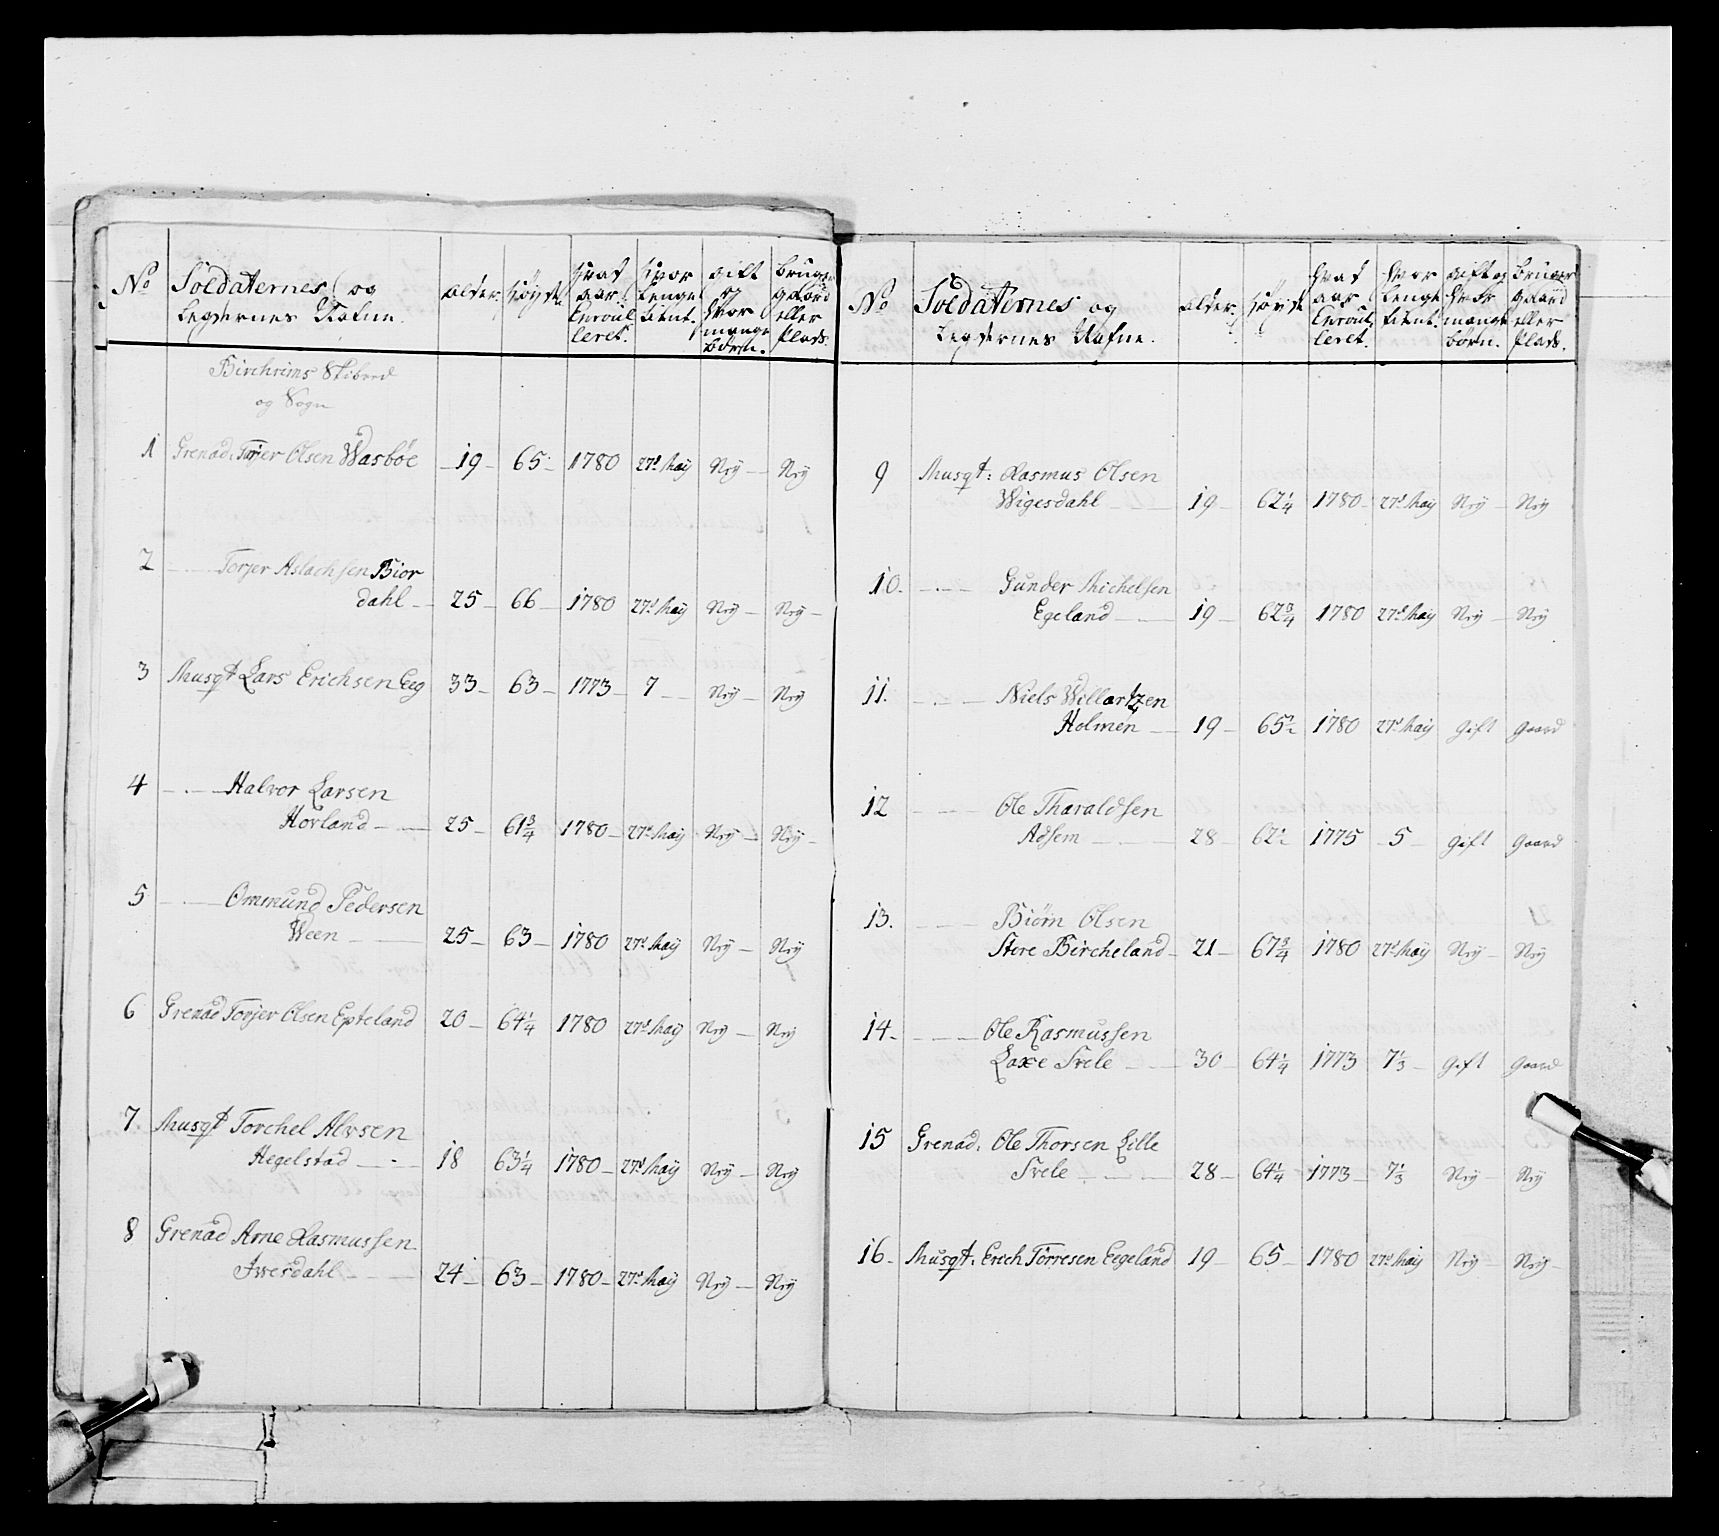 No Soldaternes og Legdernes Nafne. alder. høyde. Hvad aar Enroulleret. Hvor lenge tient. gift og Hvor mange børn. bruger gaard eller Plads.
Birchrems Skibred
og Sogn
1 Grenad. Torjer Olsen Wasbøe 19 65 1780 27d Maij Nej Nej
2 Torjer Aslachsen Bior
dahl 25 66 1780 27d Maij Nej Nej
3 Musqt Lars Erichsen Eeg 33 63 1773 7 Nej Nej
4 Halvor Larsen
Horland 25 61 3/4 1780 27d Maij Nej Nej
5 Ommund Pedersen
Ween 25 63 1780 27d Maij Nej Nej
6 Grenad Torjer Olsen Epteland 20 64 1/4 1780 27d Maij Nej Nej
7 Musqt Torchel Alvsen
Hegelstad 18 63 1/4 1780 27d Maij Nej Nej
8 Grenad Arne Rasmussen
Ivesdahl 24 63 1780 27d Maij Nej Nej
No Soldaternes og Legdernes Nafne. alder. høyde Hvad aar Enroulleret. Hvor lenge tient. gift og mange børn. bruger gaard eller Plads.
9 Musqt: Rasmus Olsen
Wigesdahl 19 62 1/4 1780 27d Maij Nej Nej
10. Gunder Michelsen
Egeland 19 62 3/4 1780 27d Maij Nej Nej
11. Niels Willartzen
Holmen 19 65 1/2 1780 27d Maij Gift Gaard
12 Ole Tharaldsen
Adsem 28 62 1/2 1775 5 Gift Gaard
13. Biørn Olsen
Store Bircheland 21 67 3/4 1780 27d Maij Nej Nej
14. Ole Rasmussen
Laxe Svele 30 64 1/4 1773 7 1/3 Gift Gaard
15 Grenad. Ole Thorsen Lille
Svele 28 64 1/4 1773 7 1/3 Nej Nej
16. Musqt. Erich Tørresen Eegeland 19 65 1780 27d Maij Nej Nej